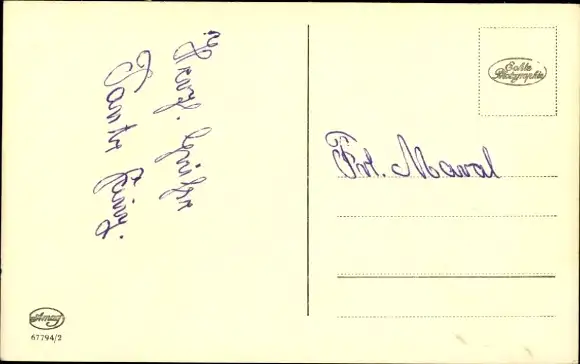 Herzl. Grüße
Tante
Frl. Maral
Echte
Photographie
Amag
67794/2